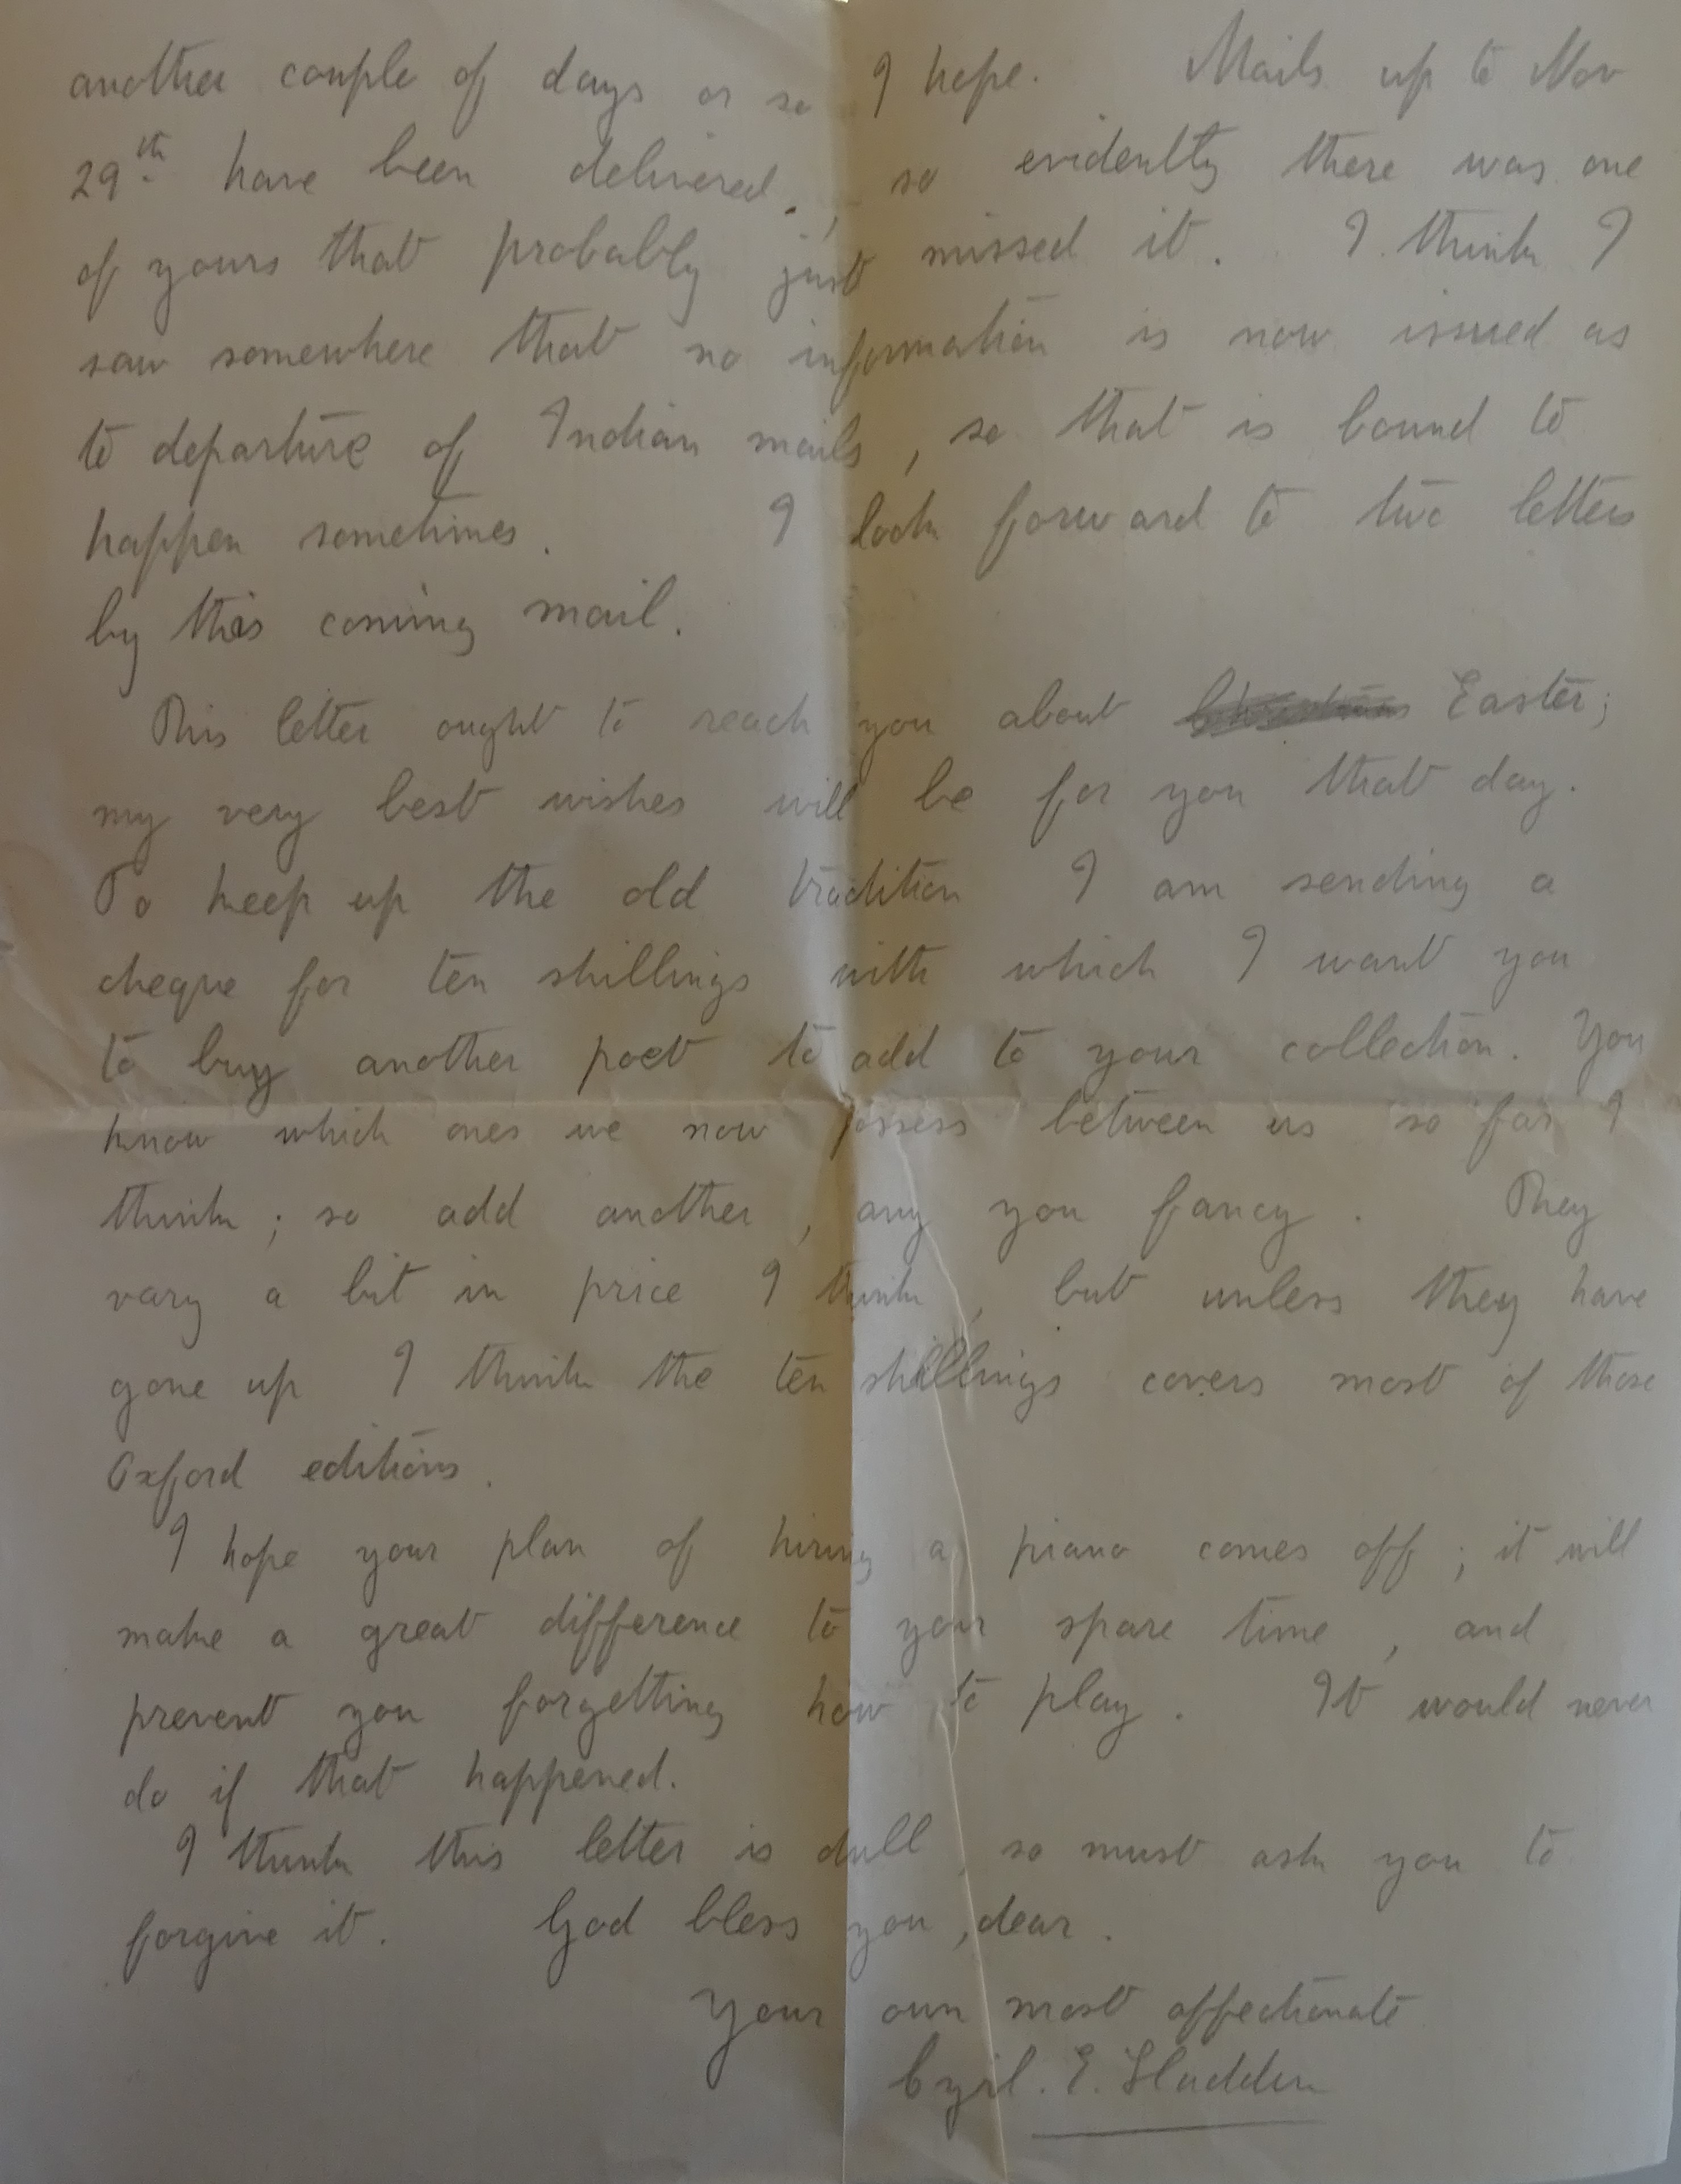 another couple of days or so I hope. Mails up to Nov
29th have been delivered, so evidently there was one
of yours that probably just missed it. I think I
saw somewhere that no information is now issued as
to departure of Indian mails, so that is bound to
happen sometimes. I look forward to two letters
by this coming mail.
This letter ought to reach you about Easter;
my very best wishes will be for you that day.
To keep up the old tradition I am sending a
cheque for ten shillings with which I want you
to buy another poet to add to your collection. You
know which ones we now possess between us so far I
think; so add another, any you fancy. They
vary a bit in price I think, but unless they have
gone up I think the ten shillings covers most of those
Oxford editions.
I hope your plan of hiring a piano comes off; it will
make a great difference to your spare time, and
prevent you forgetting how to play. It would never
do if that happened.
I think this letter is dull, so must ask you to
forgive it. God bless you, dear.
Your own most affectionate
Cyril. E. Sladden